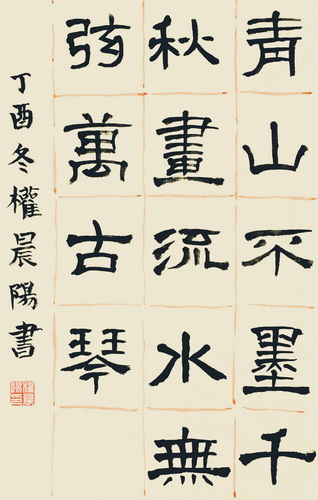 青山不墨千
秋畫流水無
弦萬古琴
丁酉冬權晨陽書